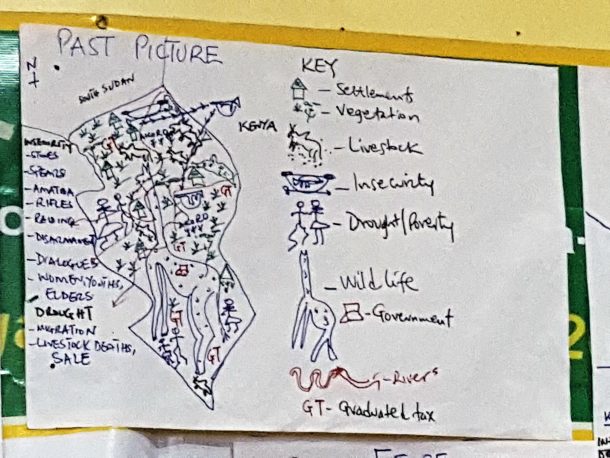 PAST PICTURE
N
SOUTH SUDAN
KENYA
INSECURITY
-STONES
-SPEARS
-AMATIDA
-RIFLES
-RAIDING
-DISARMAMENT
-DIALOGUES
-WOMEN, YOUTHS,
ELDERS
DROUGHT
-MIGRATION
-LIVESTOCK DEATHS,
SALE
GT
GT
GT
GT
GT
KEY
- Settlement
- Vegetation
- Livestock
- Insecurity
- Drought/Poverty
- Wild life
- Government
- Rivers
GT- Graduated tax
2